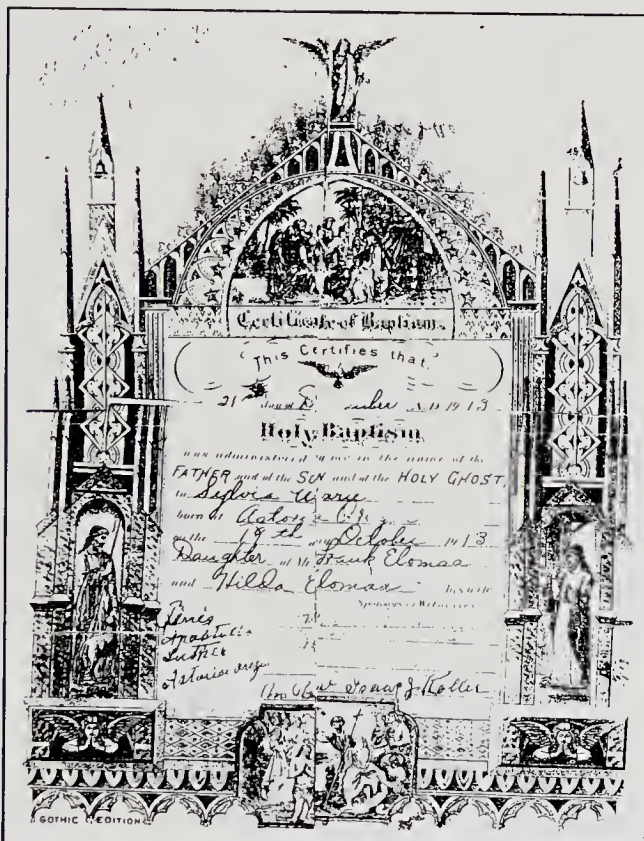 Certificate of Baptism
This Certifies that
21 day of mber A.D. 1913
Holy Baptism
was administered by me in the name of the
FATHER and of the SON and of the HOLY GHOST
to Sylvia Mary
born at Astoria
on the 18th day October 1913
Daughter of Mr Frank Elomaa
and Hilda Elomaa his wife
Sponsors or Witnesses
Finnish
Apostolic
Luth
Astoria Oreg
Isaac J Koller
GOTHIC EDITION